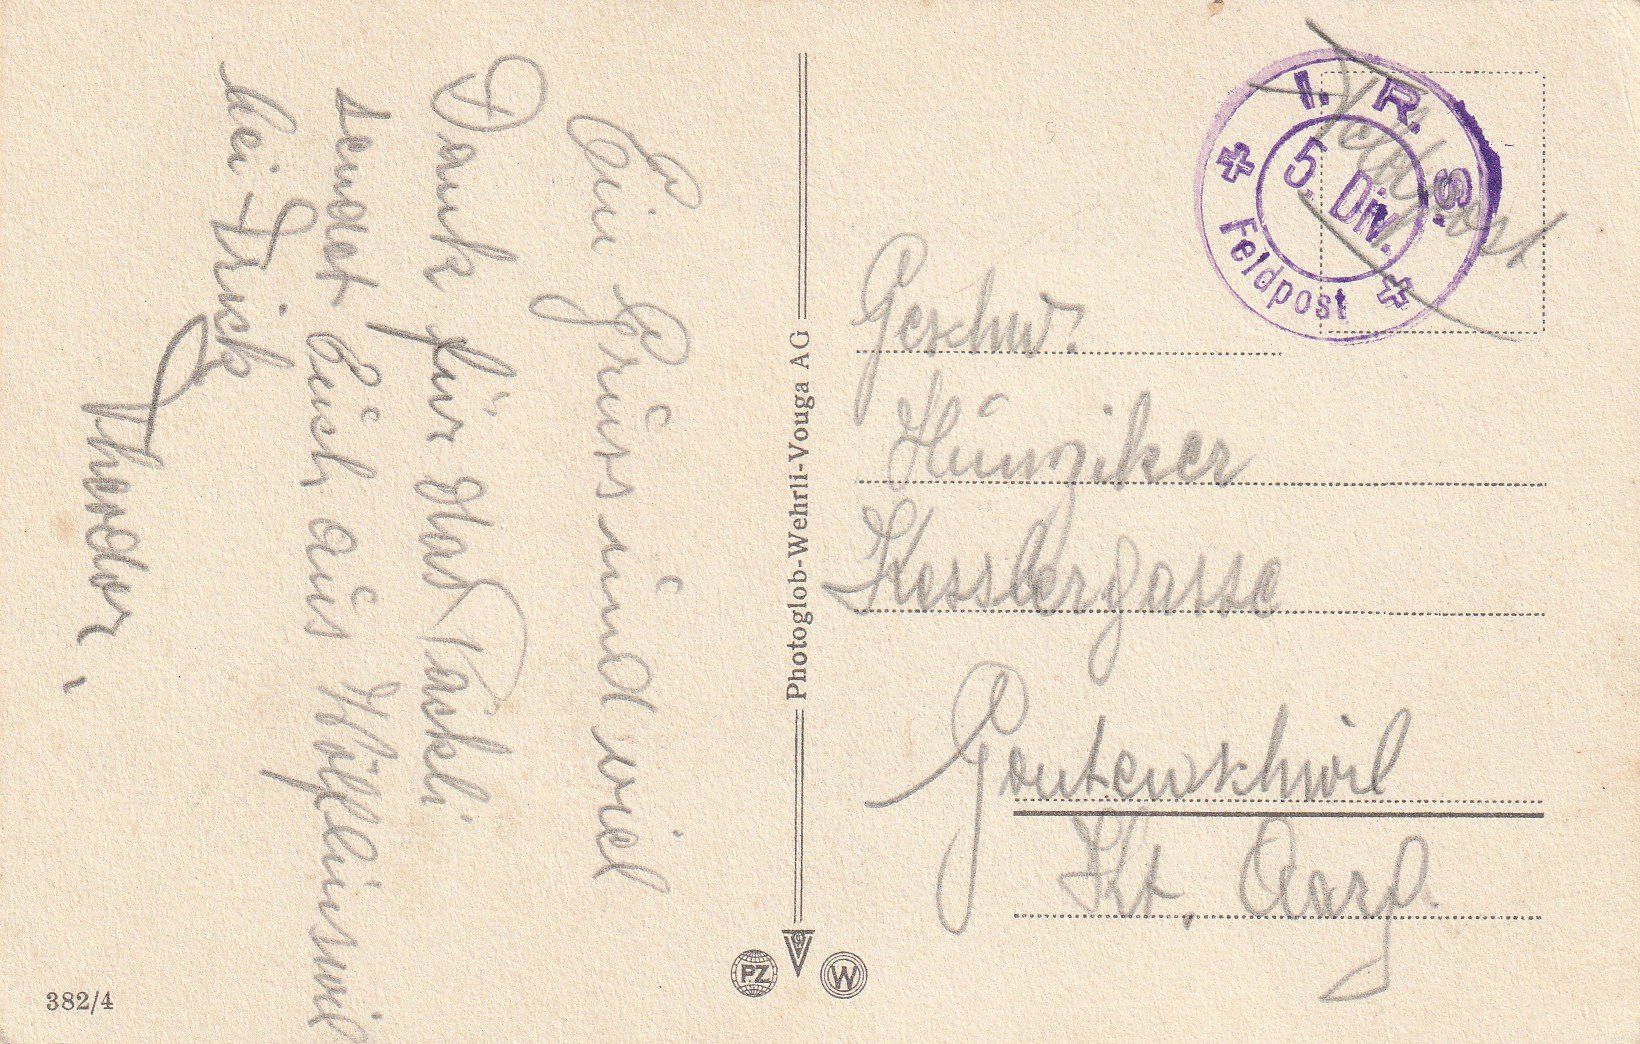 Ein Grüss und viel
Dank für Das Päckli
sendet Euch aus Wölflinswil
bei Frick
Theodor.
Photoglob-Wehrli-Vouga AG
PZ
W
382/4
Feldpost
I. R. S.
5. Div.
Feldpost
Geschw.
Hunziker
Kesslergasse
Gontenschwil
Kt. Aarg.